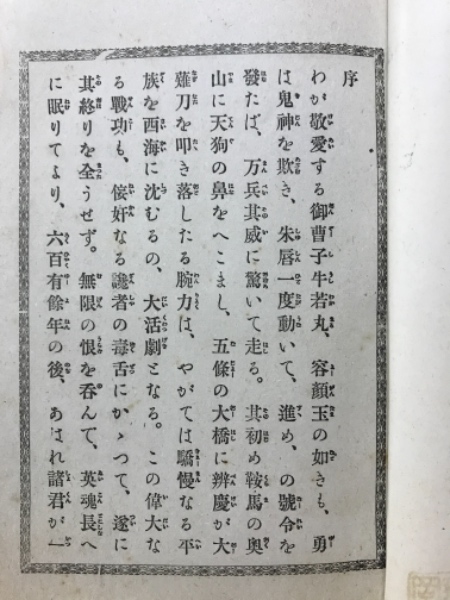 序
わが敬愛する御曹子牛若丸、容顔玉の如きも、勇
は鬼神を欺き、朱唇一度動いて、進め、の號令を
發たば、万兵其威に驚いて走る。其初め鞍馬の奥
山に天狗の鼻をへこまし、五條の大橋に辨慶が大
薙刀を叩き落したる腕力は、やがては驕慢なる平
族を西海に沈むるの、大活劇となる。この偉大な
る戰功も、侫奸なる讒者の毒舌にかゝつて、遂に
其終りを全うせず。無限の恨を呑んで、英魂長へ
に眠りてより、六百有餘年の後、あはれ諸君が一